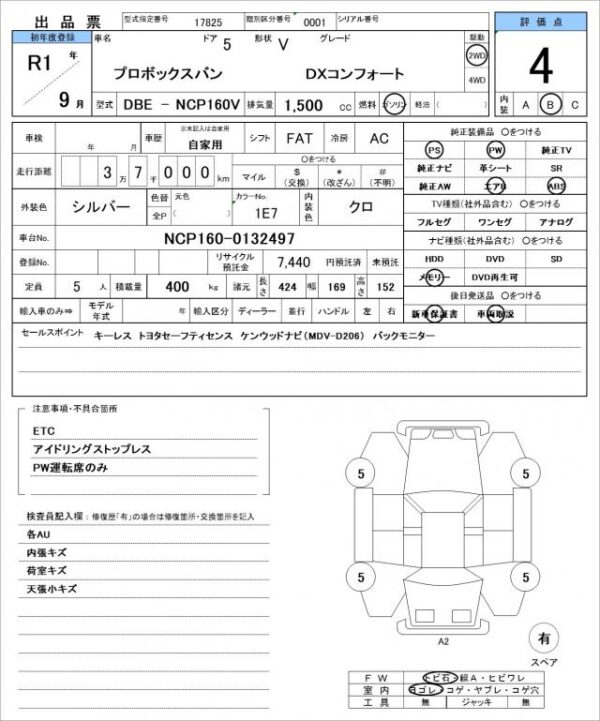 出品票 型式指定番号 17825 類別区分番号 0001 シリアル番号
評価点
初年度登録
R1 年
9 月
車名 ドア 5 形状 V グレード 駆動
プロボックスバン DXコンフォート
2WD
4WD
型式 DBE - NCP160V 排気量 1,500 cc 燃料 ガソリン 軽油 ( )
4
内装 A B C
車検 年 月 車歴 ※未記入は自家用 自家用 シフト FAT 冷房 AC
走行距離 3 万 7 千 0 0 0 km
〇をつける
マイル $ (交換) * (改ざん) # (不明)
外装色 シルバー 色替 全P 元色 ( ) カラーNo. 1E7 内装色 クロ
車台No. NCP160-0132497
登録No. リサイクル預託金 7,440 円預託済 未預託
定員 5 人 積載量 400 kg 諸元 長さ 424 幅 169 高さ 152
輸入車のみ⇒ モデル年式 年 輸入区分 ディーラー 並行 ハンドル 左 右
純正装備品 〇をつける
PS PW 純正TV
純正ナビ 革シート SR
純正AW エアB ABS
TV種類(社外品含む) 〇をつける
フルセグ ワンセグ アナログ
ナビ種類(社外品含む) 〇をつける
HDD DVD SD
メモリー DVD再生可
後日発送品 〇をつける
新車保証書 車両取説
セールスポイント キーレス トヨタセーフティセンス ケンウッドナビ(MDV-D206) バックモニター
注意事項・不具合箇所
ETC
アイドリングストップレス
PW運転席のみ
検査員記入欄: 修復歴「有」の場合は修復箇所・交換箇所を記入
各AU
内張キズ
荷室キズ
天張小キズ
5 5
5 5
A2
有
スペア
FW トビ石・線A・ヒビワレ
室内 ヨゴレ・コゲ・ヤブレ・コゲ穴
工具 無 ジャッキ 無